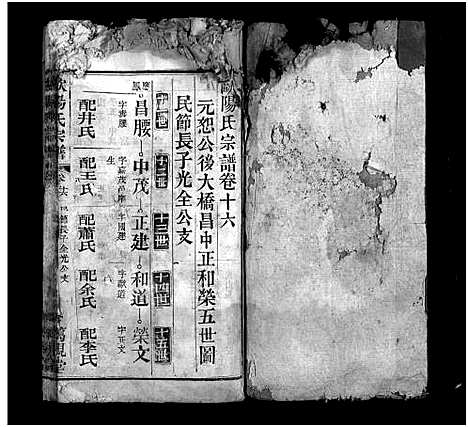 歐陽氏宗譜卷十六
元恕公後大橋昌中正和榮五世圖
民節長子光全公支
十一世 十二世 十三世 十四世 十五世
昌腰 中茂 正建 和道 榮文
字國建 字獻道 字正文
配井氏 配王氏 配蕭氏 配余氏 配李氏
歐陽氏宗譜 長子全光公支